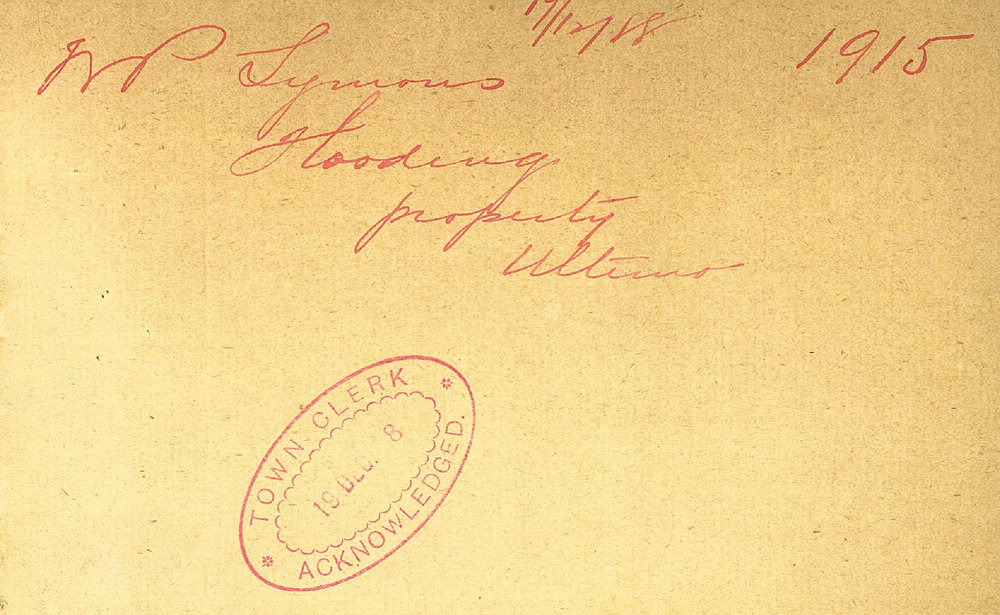 19/12/88
1915
W P Symons
flooding
property
Ultimo
TOWN CLERK
19 DEC. 8
ACKNOWLEDGED.